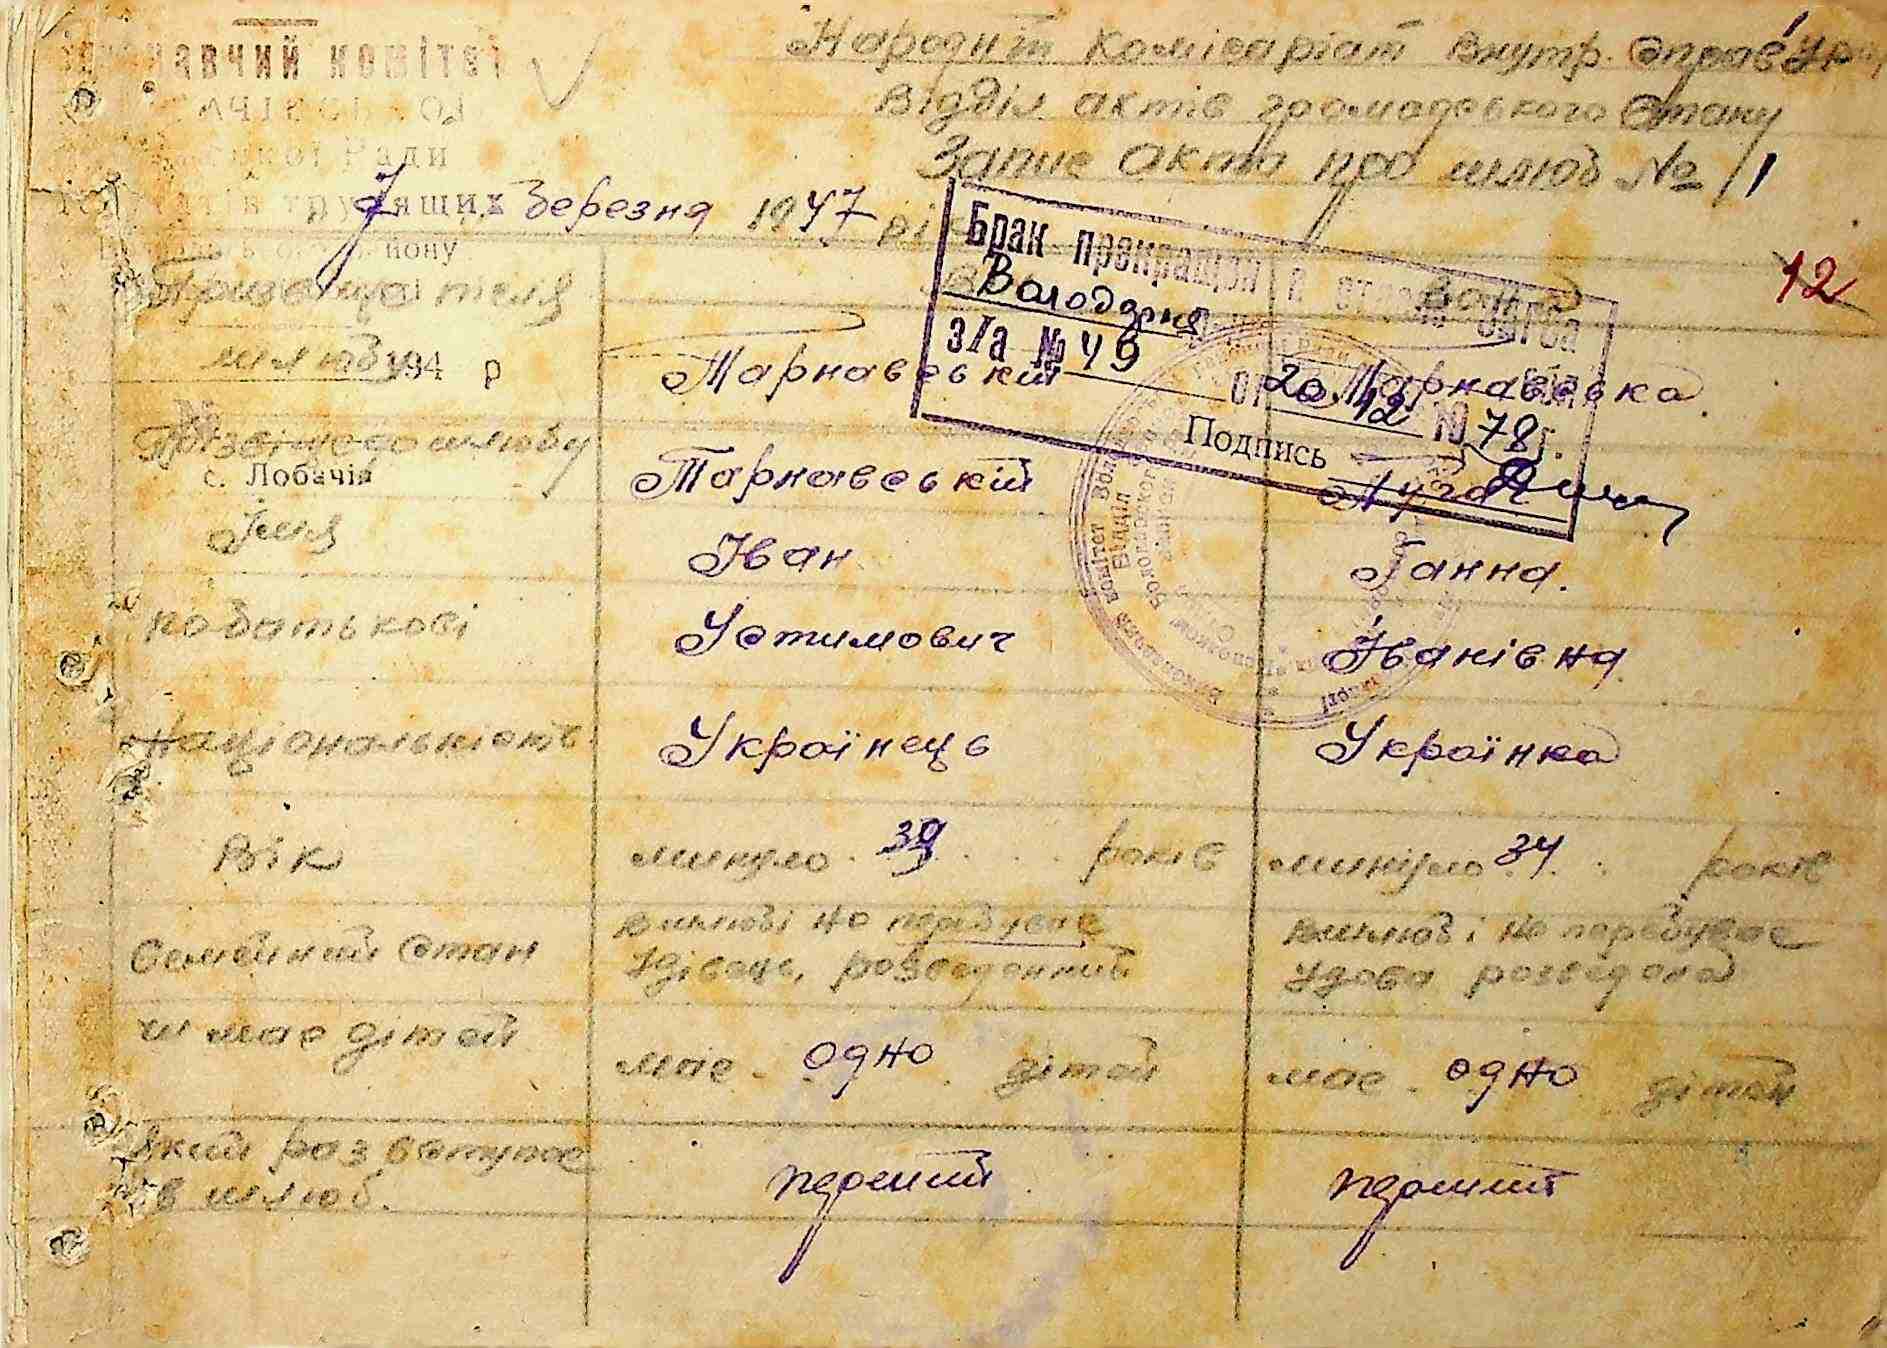 Виконавчий комітет
Ради
трудящих
194 р
с. Лобачів
Народній Комісаріат Внутр. Справ
Відділ актів громадського Стану
Запис акта про шлюб № 11
7 березня 1947 рік
12
Брак прекращен в отделе загса
Володарка
з/а № 49 от 20 12 1978 г.
Подпись
Прізвище після шлюбу
Тарнавський
Тарнавська
Прізвище до шлюбу
Тарнавський
Ім'я
Іван
Ганна.
по батькові
Устимович
Іванівна
Національність
Українець
Українка
Вік
минуло 39 років
минуло 34 років
Сімейний Стан
в шлюбі не перебуває
Удівець, розведенний
в шлюбі не перебуває
Удова розведена
чи має дітей
має одно дітей
має одно дітей
Який раз вступає
в шлюб.
перший
перший